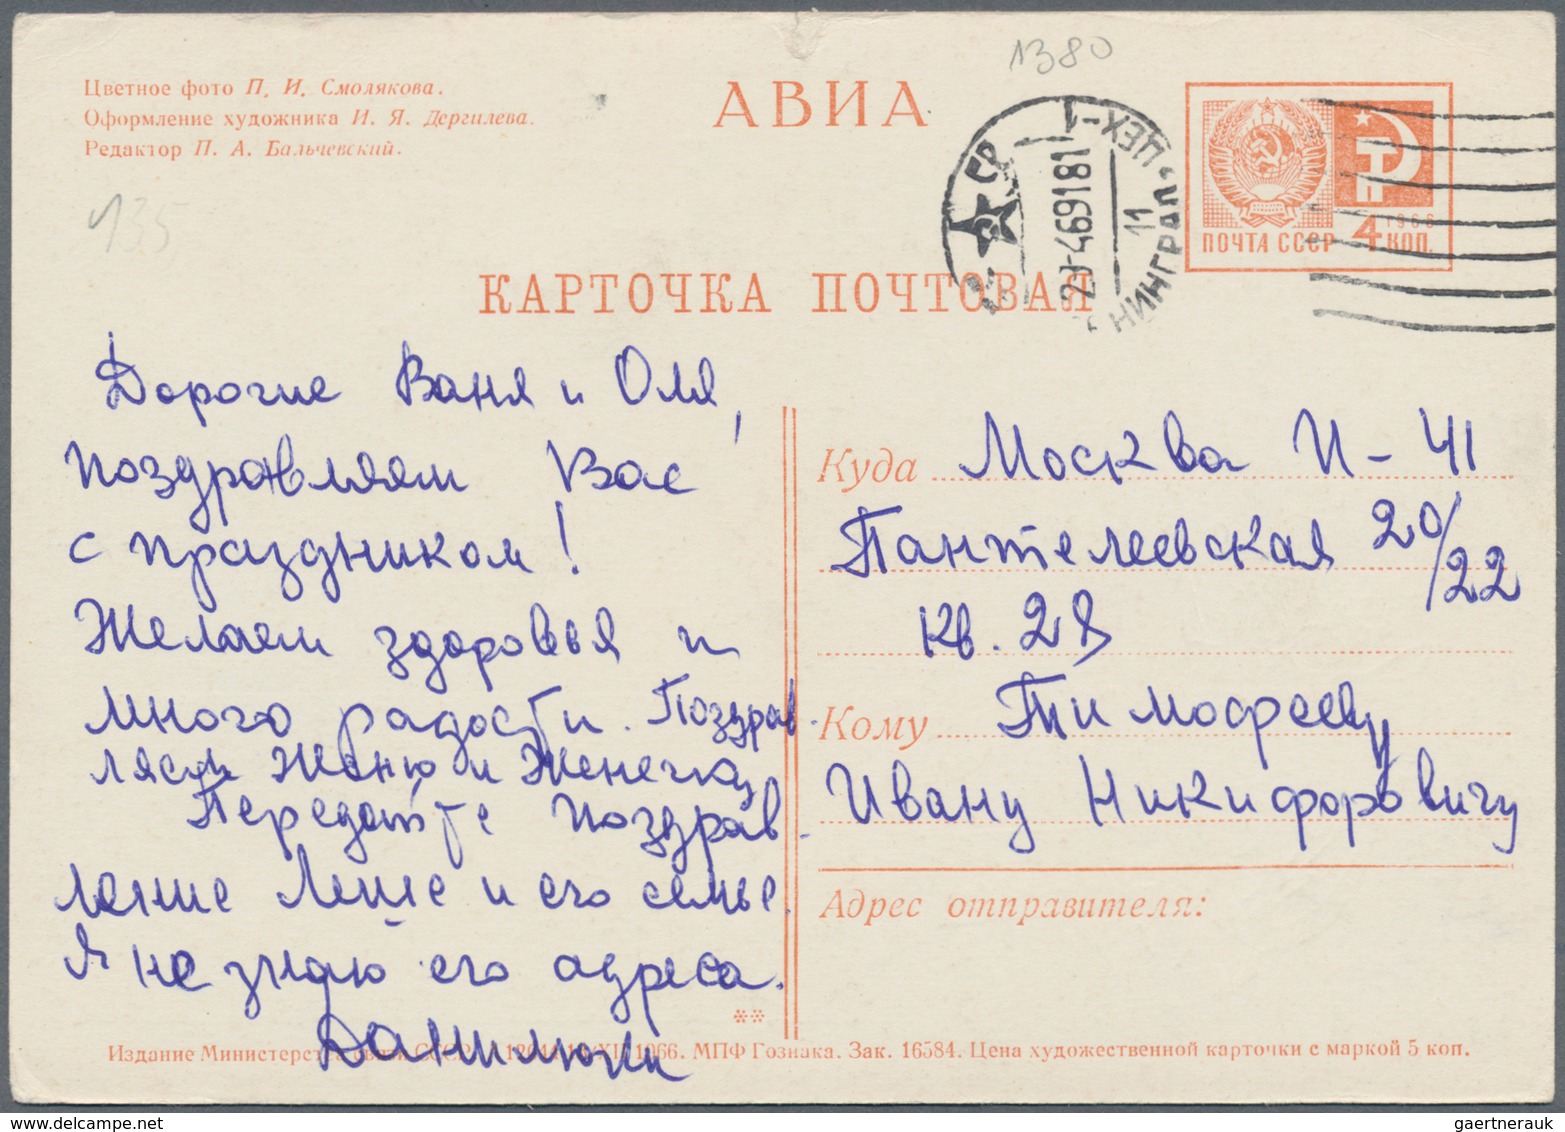 1380
Цветное фото П. И. Смолякова.
Оформление художника И. Я. Дергилева.
Редактор П. А. Бальчевский.
135
АВИА
ЦЕХ-1
11
ПОЧТА СССР
1966
4 КОП.
КАРТОЧКА ПОЧТОВАЯ
Дорогие Ваня и Оля,
поздравляем Вас
с праздником!
Желаем здоровья и
много радости. Поздрав-
ляем Женю и Женечку
Передайте поздрав-
ление Леше и его семье.
Я не знаю его адреса.
Куда Москва И-41
Пантелеевская 20/22
кв. 28
Кому Тимофееву
Ивану Никифоровичу
Адрес отправителя:
**
Издание Министерства связи СССР. 1966. МПФ Гознака. Зак. 16584. Цена художественной карточки с маркой 5 коп.
delcampe.net
gaertnerauk